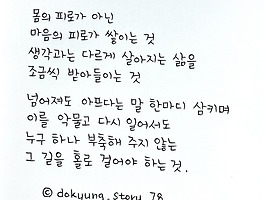 몸의 피로가 아닌
마음의 피로가 쌓이는 것
생각과는 다르게 살아지는 삶을
조금씩 받아들이는 것
넘어져도 아프다는 말 한마디 삼키며
이를 악물고 다시 일어서도
누구 하나 부축해 주지 않는
그 길을 홀로 걸어야 하는 것.
© dokyung_story_78